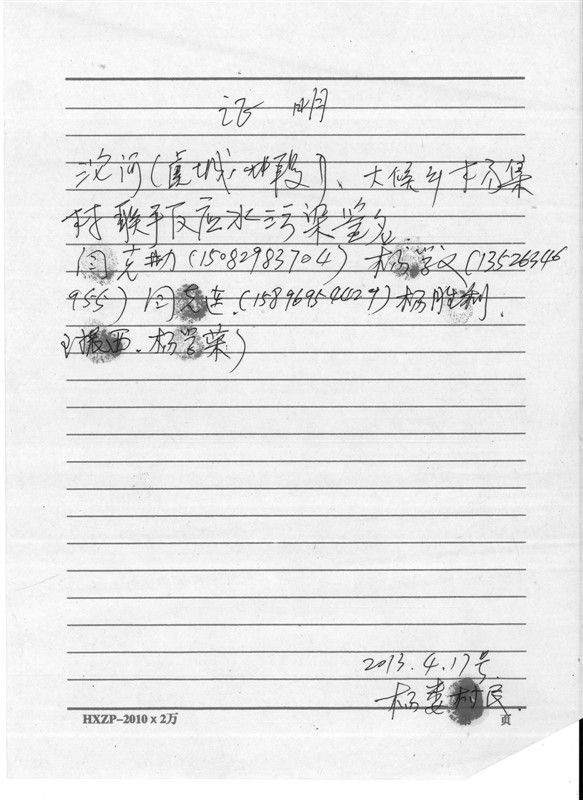 证 明
沱河(虞城、城段)、大候乡
村 联手反应水污染签名
闫克勤(15082983704) 杨学义(13526346
955) 闫克连.(15896954429) 杨胜利.
王振西.杨学荣)
2013.4.17号.
杨娄村民
HXZP-2010×2万 页